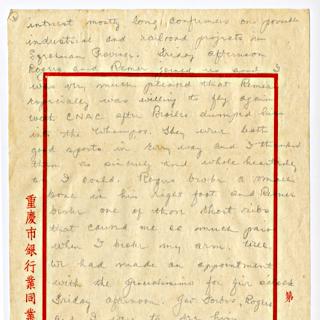 interest mostly long conferences on possible
industrial and railroad projects in
Szechuan Province. Friday afternoon
Rogers and Remer joined us and I
was very much pleased that Remer
especially was willing to fly again
with CNAC after Broiles dumped him
into the Whampoo. They were both
good sports in every way and I thanked
them as sincerely and whole heartedly
as I could. Rogers broke a small
bone in his right foot and Remer
broke one of those short ribs
that caused me so much pain
when I broke my arm. Well
we had made an appointment
with the Generalissimo for five o'clock
Friday afternoon. Gov Forbes, Rogers
and I
重慶市銀行業同業
第